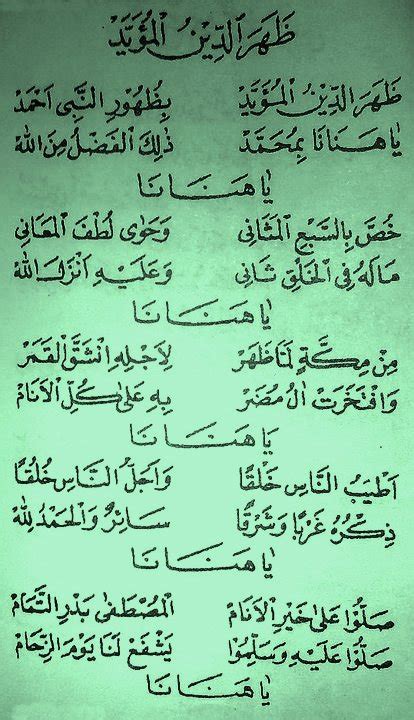 ظَهَرَ الدِّيْنُ الْمُؤَيَّدْ
ظَهَرَ الدِّيْنُ الْمُؤَيَّدْ بِظُهُوْرِ النَّبِى اَحْمَدْ
يَا هَنَانَا بِمُحَمَّدْ ذٰلِكَ الْفَضْلُ مِنَ اللهْ
يَا هَنَانَا
خُصَّ بِالسَّبْعِ الْمَثَانِى وَحَوٰى لُطْفَ الْمَعَانِى
مَالَهُ فِى الْخَلْقِ ثَانِى وَعَلَيْهِ اَنْزَلَ اللهْ
يَا هَنَانَا
مِنْ مَكَّةٍ لَمَّا ظَهَرْ لِاَجْلِهِ انْشَقَّ الْقَمَرْ
وَافْتَخَرَتْ اٰلُ مُضَرْ بِهِ عَلٰى كُلِّ الْاَنَامْ
يَا هَنَانَا
اَطْيَبُ النَّاسِ خَلْقًا وَاَجَلُّ النَّاسِ خُلُقًا
ذِكْرُهُ غَرْبًا وَشَرْقًا سَائِرٌ وَالْحَمْدُ لِلّٰهْ
يَا هَنَانَا
صَلُّوْا عَلٰى خَيْرِ الْاَنَامْ الْمُصْطَفٰى بَدْرِ التَّمَامْ
صَلُّوْا عَلَيْهِ وَسَلِّمُوْا يَشْفَعْ لَنَا يَوْمَ الزِّحَامْ
يَا هَنَانَا